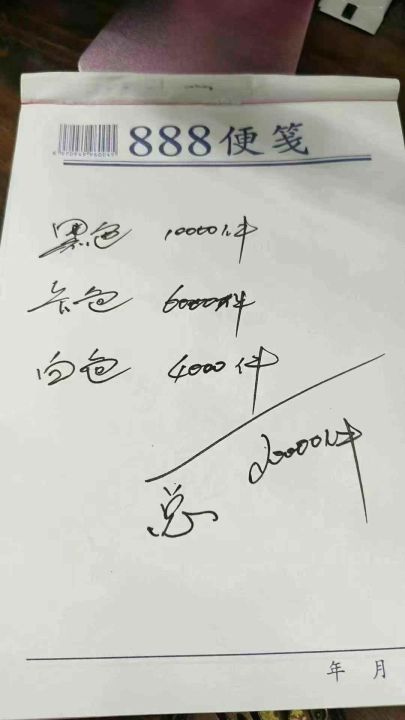 888便笺
黑色 10000件
卡色 6000件
白色 4000件
20000件
总
年 月